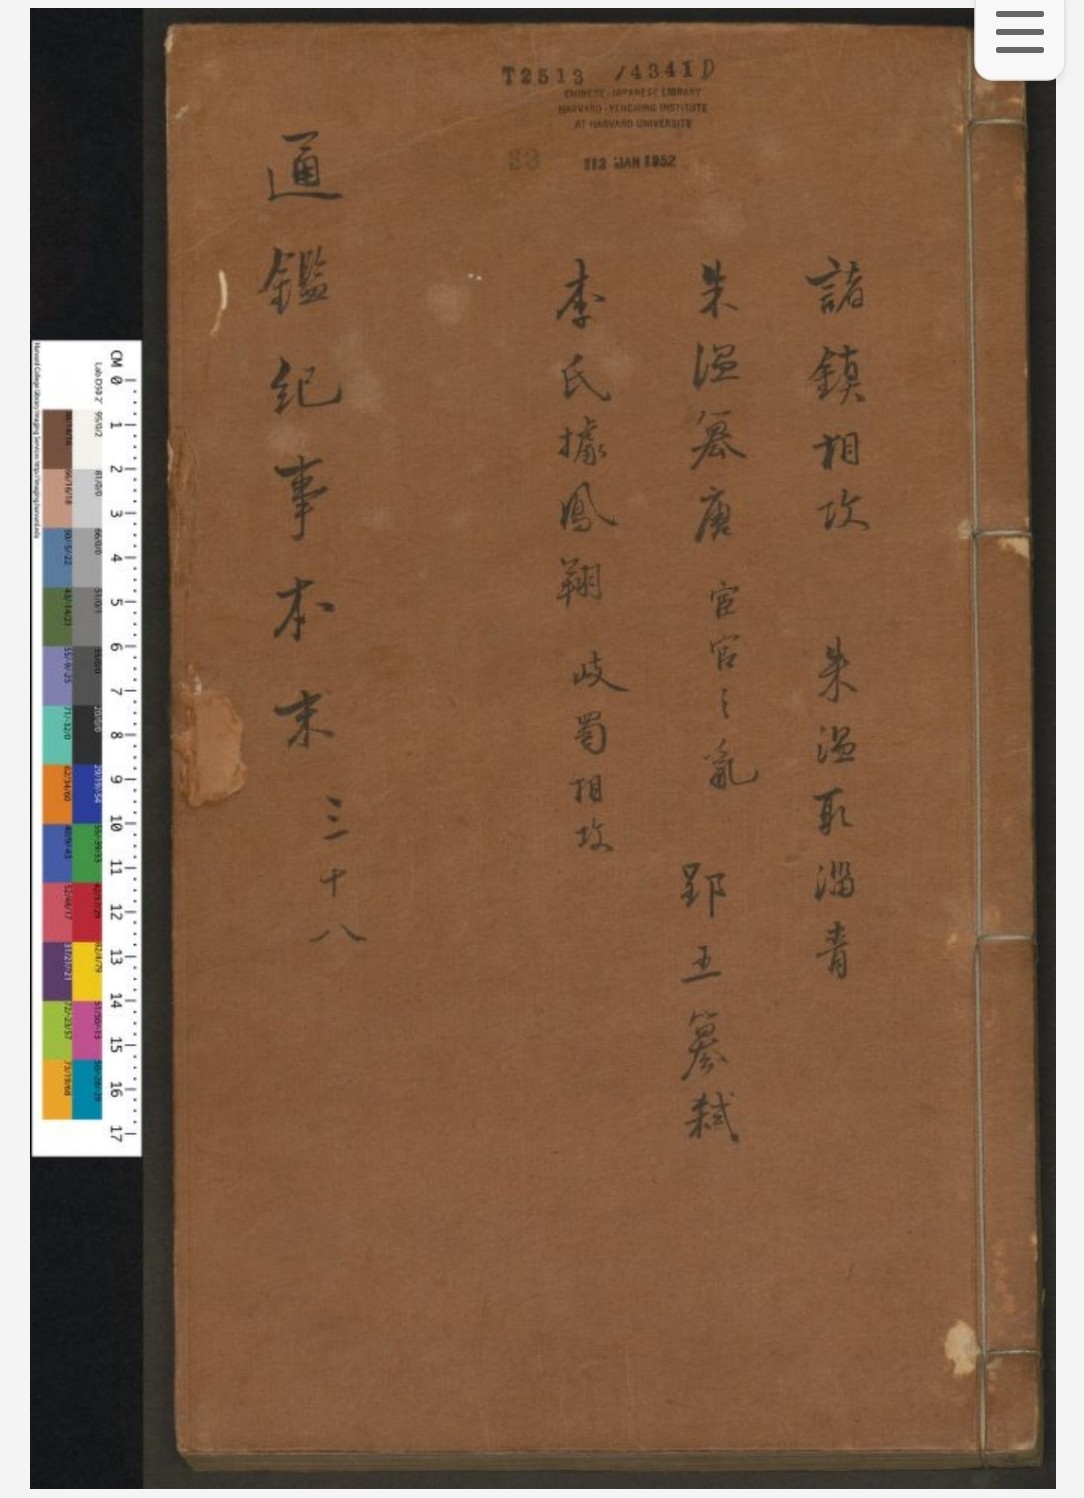 T2513 /4341D
CHINESE-JAPANESE LIBRARY
HARVARD-YENCHING INSTITUTE
AT HARVARD UNIVERSITY
23
JAN 1952
諸鎮相攻 朱温取淄青
朱温篡唐 宦官之亂 郢王篡弑
李氏據鳳翔 岐蜀相攻
通鑑紀事本末 三十八
CM 0 1 2 3 4 5 6 7 8 9 10 11 12 13 14 15 16 17